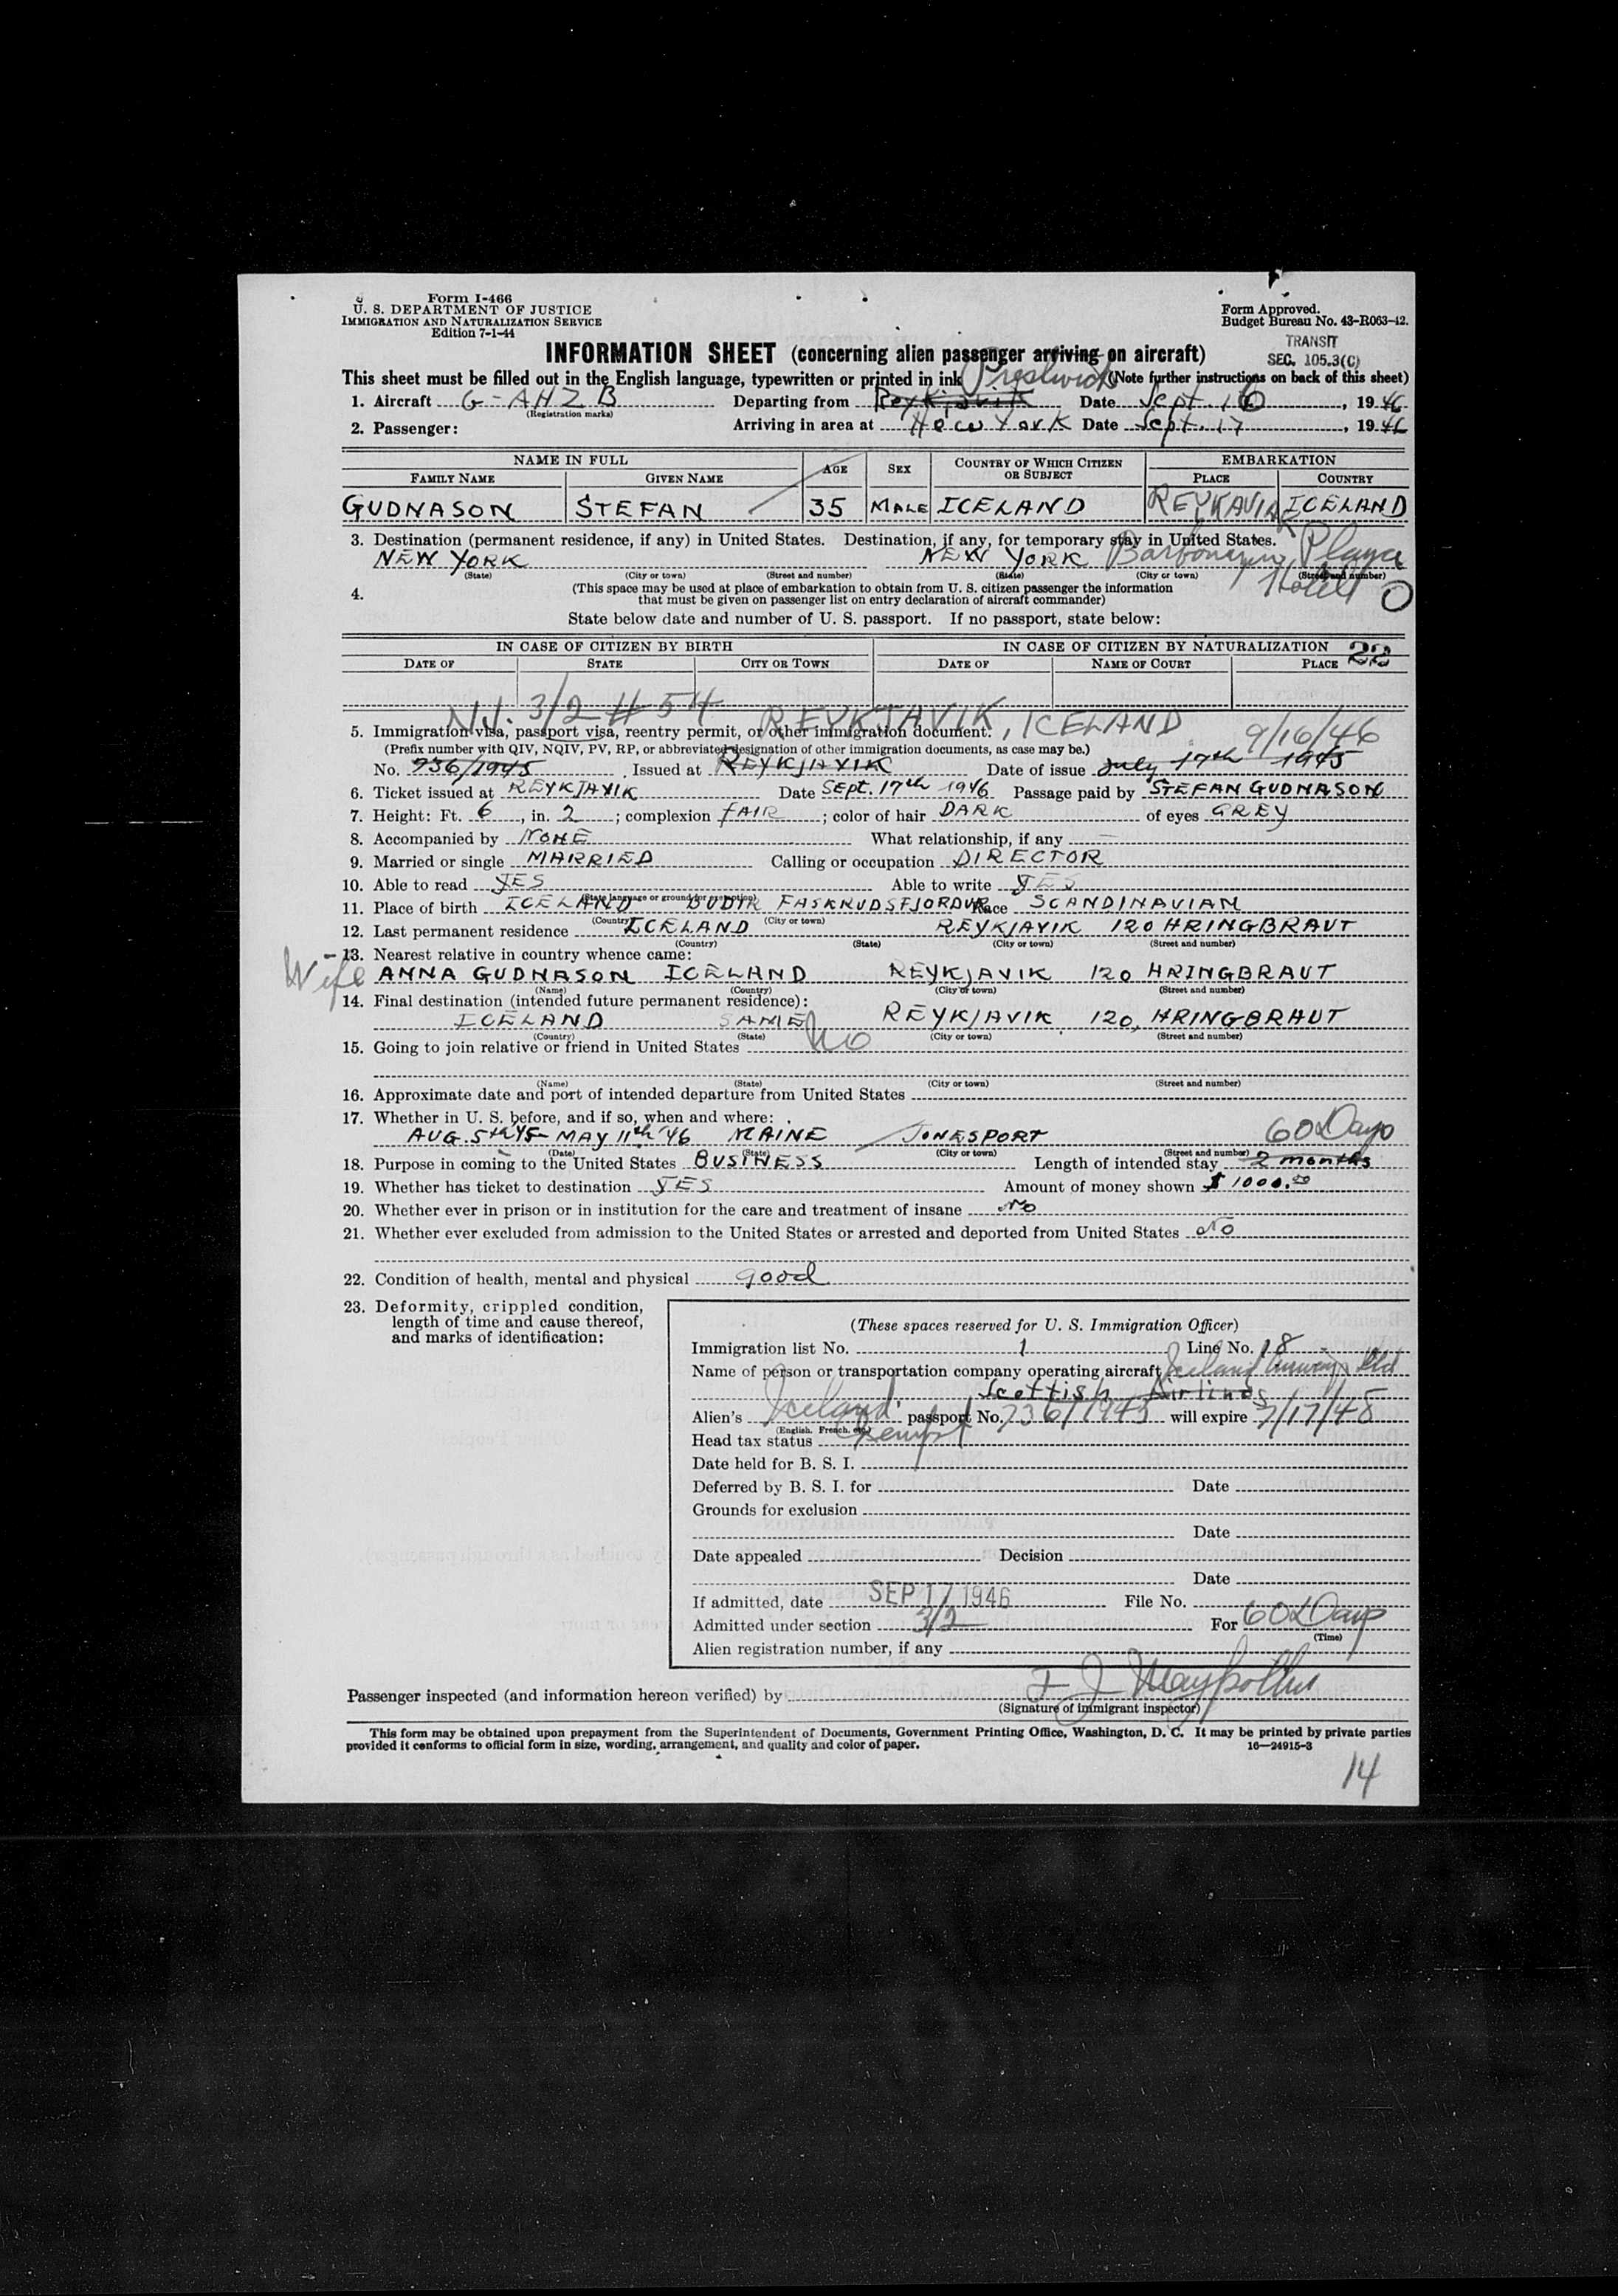 Form I-466
U. S. DEPARTMENT OF JUSTICE
IMMIGRATION AND NATURALIZATION SERVICE
Edition 7-1-44
Form Approved.
Budget Bureau No. 43-R063-42.
TRANSIT
SEC. 105.3(C)
INFORMATION SHEET (concerning alien passenger arriving on aircraft)
This sheet must be filled out in the English language, typewritten or printed in ink (Note further instructions on back of this sheet)
Prestwick
1. Aircraft G-AHZB Departing from Reykjavik Date Sept. 16, 1946
(Registration marks)
2. Passenger: Arriving in area at New York Date Sept. 17, 1946
NAME IN FULL AGE SEX COUNTRY OF WHICH CITIZEN OR SUBJECT EMBARKATION
FAMILY NAME GIVEN NAME PLACE COUNTRY
GUDNASON STEFAN 35 MALE ICELAND REYKAVIK ICELAND
3. Destination (permanent residence, if any) in United States. Destination, if any, for temporary stay in United States.
NEW YORK NEW YORK Plaza
(State) (City or town) (Street and number) (State) (City or town) (Street and number)
Hotel
4. (This space may be used at place of embarkation to obtain from U. S. citizen passenger the information
that must be given on passenger list on entry declaration of aircraft commander)
State below date and number of U. S. passport. If no passport, state below:
IN CASE OF CITIZEN BY BIRTH IN CASE OF CITIZEN BY NATURALIZATION 22
DATE OF STATE CITY OR TOWN DATE OF NAME OF COURT PLACE
3/2 # 54 REYKJAVIK, ICELAND 9/16/46
5. Immigration visa, passport visa, reentry permit, or other immigration document.
(Prefix number with QIV, NQIV, PV, RP, or abbreviated designation of other immigration documents, as case may be.)
No. 736/1945 Issued at REYKJAVIK Date of issue July 17th 1945
6. Ticket issued at REYKJAVIK Date SEPT. 17th 1946 Passage paid by STEFAN GUDNASON
7. Height: Ft. 6, in. 2; complexion FAIR; color of hair DARK of eyes GREY
8. Accompanied by NONE What relationship, if any —
9. Married or single MARRIED Calling or occupation DIRECTOR
10. Able to read YES Able to write YES
(State language or ground for exemption)
11. Place of birth ICELAND BUDIR FASKRUDSFJORDUR Race SCANDINAVIAN
(Country) (City or town)
12. Last permanent residence ICELAND REYKJAVIK 120 HRINGBRAUT
(Country) (State) (City or town) (Street and number)
13. Nearest relative in country whence came:
Wife ANNA GUDNASON ICELAND REYKJAVIK 120 HRINGBRAUT
(Name) (Country) (City or town) (Street and number)
14. Final destination (intended future permanent residence):
ICELAND SAME REYKJAVIK 120, HRINGBRAUT
(Country) (State) (City or town) (Street and number)
15. Going to join relative or friend in United States No
(Name) (State) (City or town) (Street and number)
16. Approximate date and port of intended departure from United States
17. Whether in U. S. before, and if so, when and where:
AUG. 5th 45 - MAY 11th 46 MAINE JONESPORT 60 Days
(Date) (State) (City or town) (Street and number)
18. Purpose in coming to the United States BUSINESS Length of intended stay 2 months
19. Whether has ticket to destination YES Amount of money shown $ 1000.00
20. Whether ever in prison or in institution for the care and treatment of insane No
21. Whether ever excluded from admission to the United States or arrested and deported from United States No
22. Condition of health, mental and physical good
23. Deformity, crippled condition,
length of time and cause thereof,
and marks of identification:
(These spaces reserved for U. S. Immigration Officer)
Immigration list No. 1 Line No. 18
Name of person or transportation company operating aircraft Iceland Airways Ltd
Scottish Airlines
Alien's Iceland passport No. 736/1945 will expire 7/17/48
(English, French, etc.)
Head tax status Exempt
Date held for B. S. I.
Deferred by B. S. I. for Date
Grounds for exclusion
Date
Date appealed Decision
Date
If admitted, date SEP 17 1946 File No.
Admitted under section 3/2 For 60 Days
(Time)
Alien registration number, if any
Passenger inspected (and information hereon verified) by F J
(Signature of immigrant inspector)
This form may be obtained upon prepayment from the Superintendent of Documents, Government Printing Office, Washington, D. C. It may be printed by private parties
provided it conforms to official form in size, wording, arrangement, and quality and color of paper. 16—24915-3
14